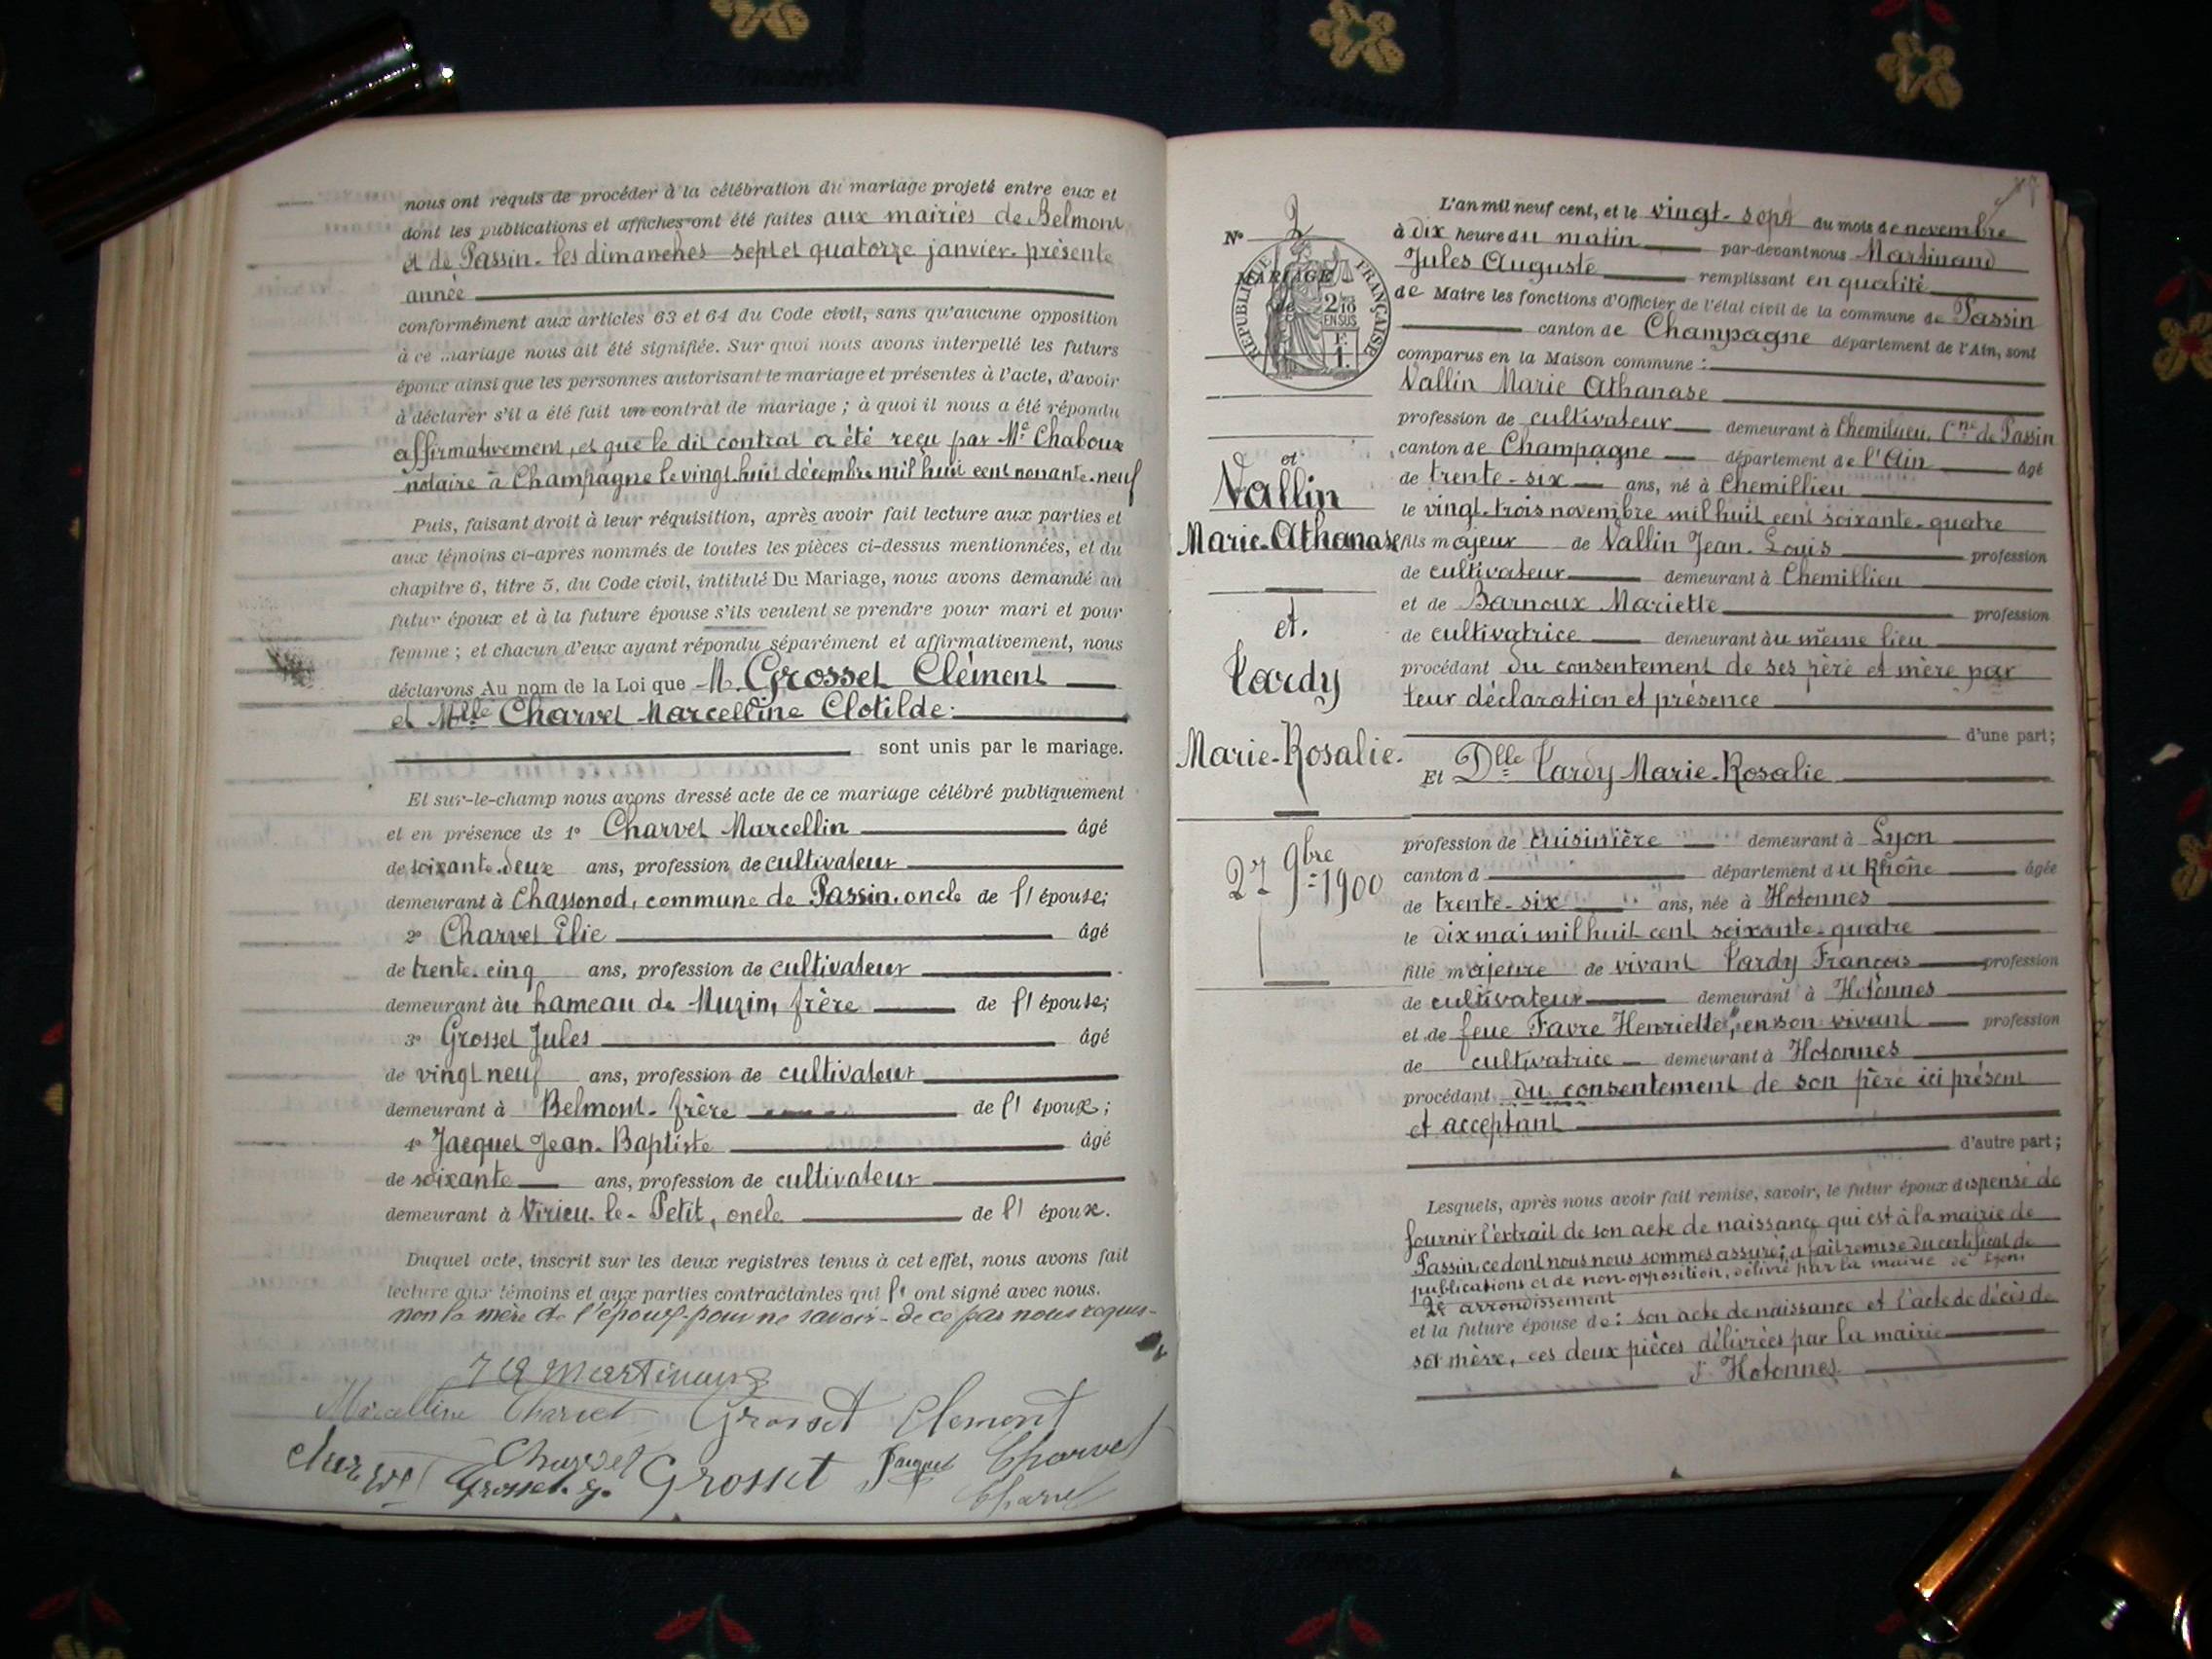 nous ont requis de procéder à la célébration du mariage projeté entre eux et
dont les publications et affiches ont été faites aux mairies de Belmont
et de Passin. les dimanches sept et quatorze janvier. présente
année
conformément aux articles 63 et 64 du Code civil, sans qu'aucune opposition
à ce mariage nous ait été signifiée. Sur quoi nous avons interpellé les futurs
époux ainsi que les personnes autorisant le mariage et présentes à l'acte, d'avoir
à déclarer s'il a été fait un contrat de mariage ; à quoi il nous a été répondu
affirmativement, et que le dit contrat a été reçu par Me Chaboux
notaire à Champagne le vingt.huit décembre mil huit cent nonante.neuf
Puis, faisant droit à leur réquisition, après avoir fait lecture aux parties et
aux témoins ci-après nommés de toutes les pièces ci-dessus mentionnées, et du
chapitre 6, titre 5, du Code civil, intitulé Du Mariage, nous avons demandé au
futur époux et à la future épouse s'ils veulent se prendre pour mari et pour
femme ; et chacun d'eux ayant répondu séparément et affirmativement, nous
déclarons Au nom de la Loi que M. Grosset Clément
et Mlle Charvet Marcelline Clotilde.
sont unis par le mariage.
Et sur-le-champ nous avons dressé acte de ce mariage célébré publiquement
et en présence de 1° Charvet Marcellin âgé
de soixante.deux ans, profession de cultivateur
demeurant à Chassoned, commune de Passin. oncle de l' épouse;
2° Charvet Élie âgé
de trente.cinq ans, profession de cultivateur
demeurant àu hameau de Muzin, frère de l' épouse;
3° Grosset Jules âgé
de vingt neuf ans, profession de cultivateur
demeurant à Belmont. frère de l' époux;
4° Jacquet Jean. Baptiste âgé
de soixante ans, profession de cultivateur
demeurant à Virieu. le. Petit, oncle de l' époux.
Duquel acte, inscrit sur les deux registres tenus à cet effet, nous avons fait
lecture aux témoins et aux parties contractantes qui ont signé avec nous.
non la mère de l'époux pour ne savoir - de ce par nous requis -
J A Martinand
Marcelline Charvet Grosset Clement
Charvet Grosset Jacquet Charvet
Grosset. J. Charvet
N° 2
MARIAGE
de
RÉPUBLIQUE FRANÇAISE
2/10
EN SUS
F.
1.
et
Vallin
Marie-Athanase
et.
Tardy
Marie-Rosalie.
27 9bre 1900
L'an mil neuf cent, et le vingt-sept du mois de novembre
à dix heure du matin par-devant nous Martinand
Jules Auguste remplissant en qualité
de Maire les fonctions d'Officier de l'état civil de la commune de Passin
canton de Champagne département de l'Ain, sont
comparus en la Maison commune :
Vallin Marie Athanase
profession de cultivateur demeurant à Chemillieu, Cne de Passin
canton de Champagne département de l'Ain âgé
de trente-six ans, né à Chemillieu
le vingt.trois novembre mil huit cent soixante.quatre
fils majeur de Vallin Jean. Louis profession
de cultivateur demeurant à Chemillieu
et de Barnoux Mariette profession
de cultivatrice demeurant àu même lieu
procédant du consentement de ses père et mère par
leur déclaration et présence
d'une part;
Et Dlle Tardy Marie-Rosalie
profession de cuisinière demeurant à Lyon
canton d département du Rhône âgée
de trente-six ans, née à Hotonnes
le dix mai mil huit cent soixante.quatre
fille majeure de vivant Tardy François profession
de cultivateur demeurant à Hotonnes
et de feue Favre Henriette, en son vivant profession
de cultivatrice demeurant à Hotonnes
procédant du consentement de son père ici présent
et acceptant
d'autre part;
Lesquels, après nous avoir fait remise, savoir, le futur époux dispensé de
fournir l'extrait de son acte de naissance qui est à la mairie de
Passin, ce dont nous nous sommes assuré; a fait remise du certificat de
publications et de non-opposition, délivré par la mairie de Lyon
2e arrondissement
et la future épouse de : son acte de naissance et l'acte de décès de
sa mère, ces deux pièces délivrées par la mairie
d' Hotonnes